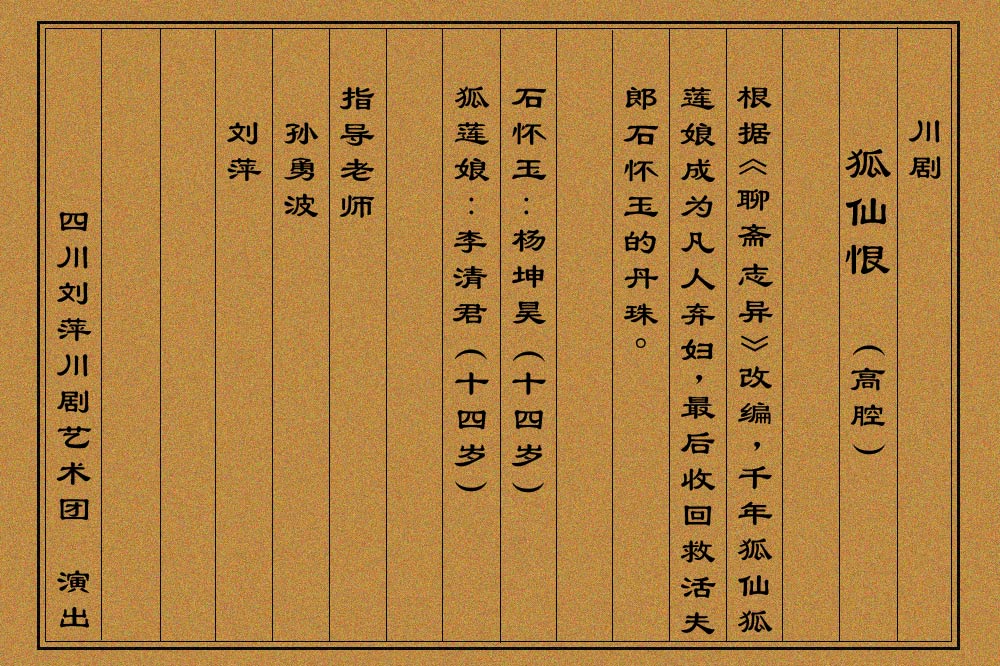 川剧
狐仙恨 （高腔）
根据《聊斋志异》改编，千年狐仙狐
莲娘成为凡人弃妇，最后收回救活夫
郎石怀玉的丹珠。
石怀玉：杨坤昊（十四岁）
狐莲娘：李清君（十四岁）
指导老师
孙勇波
刘萍
四川刘萍川剧艺术团 演出